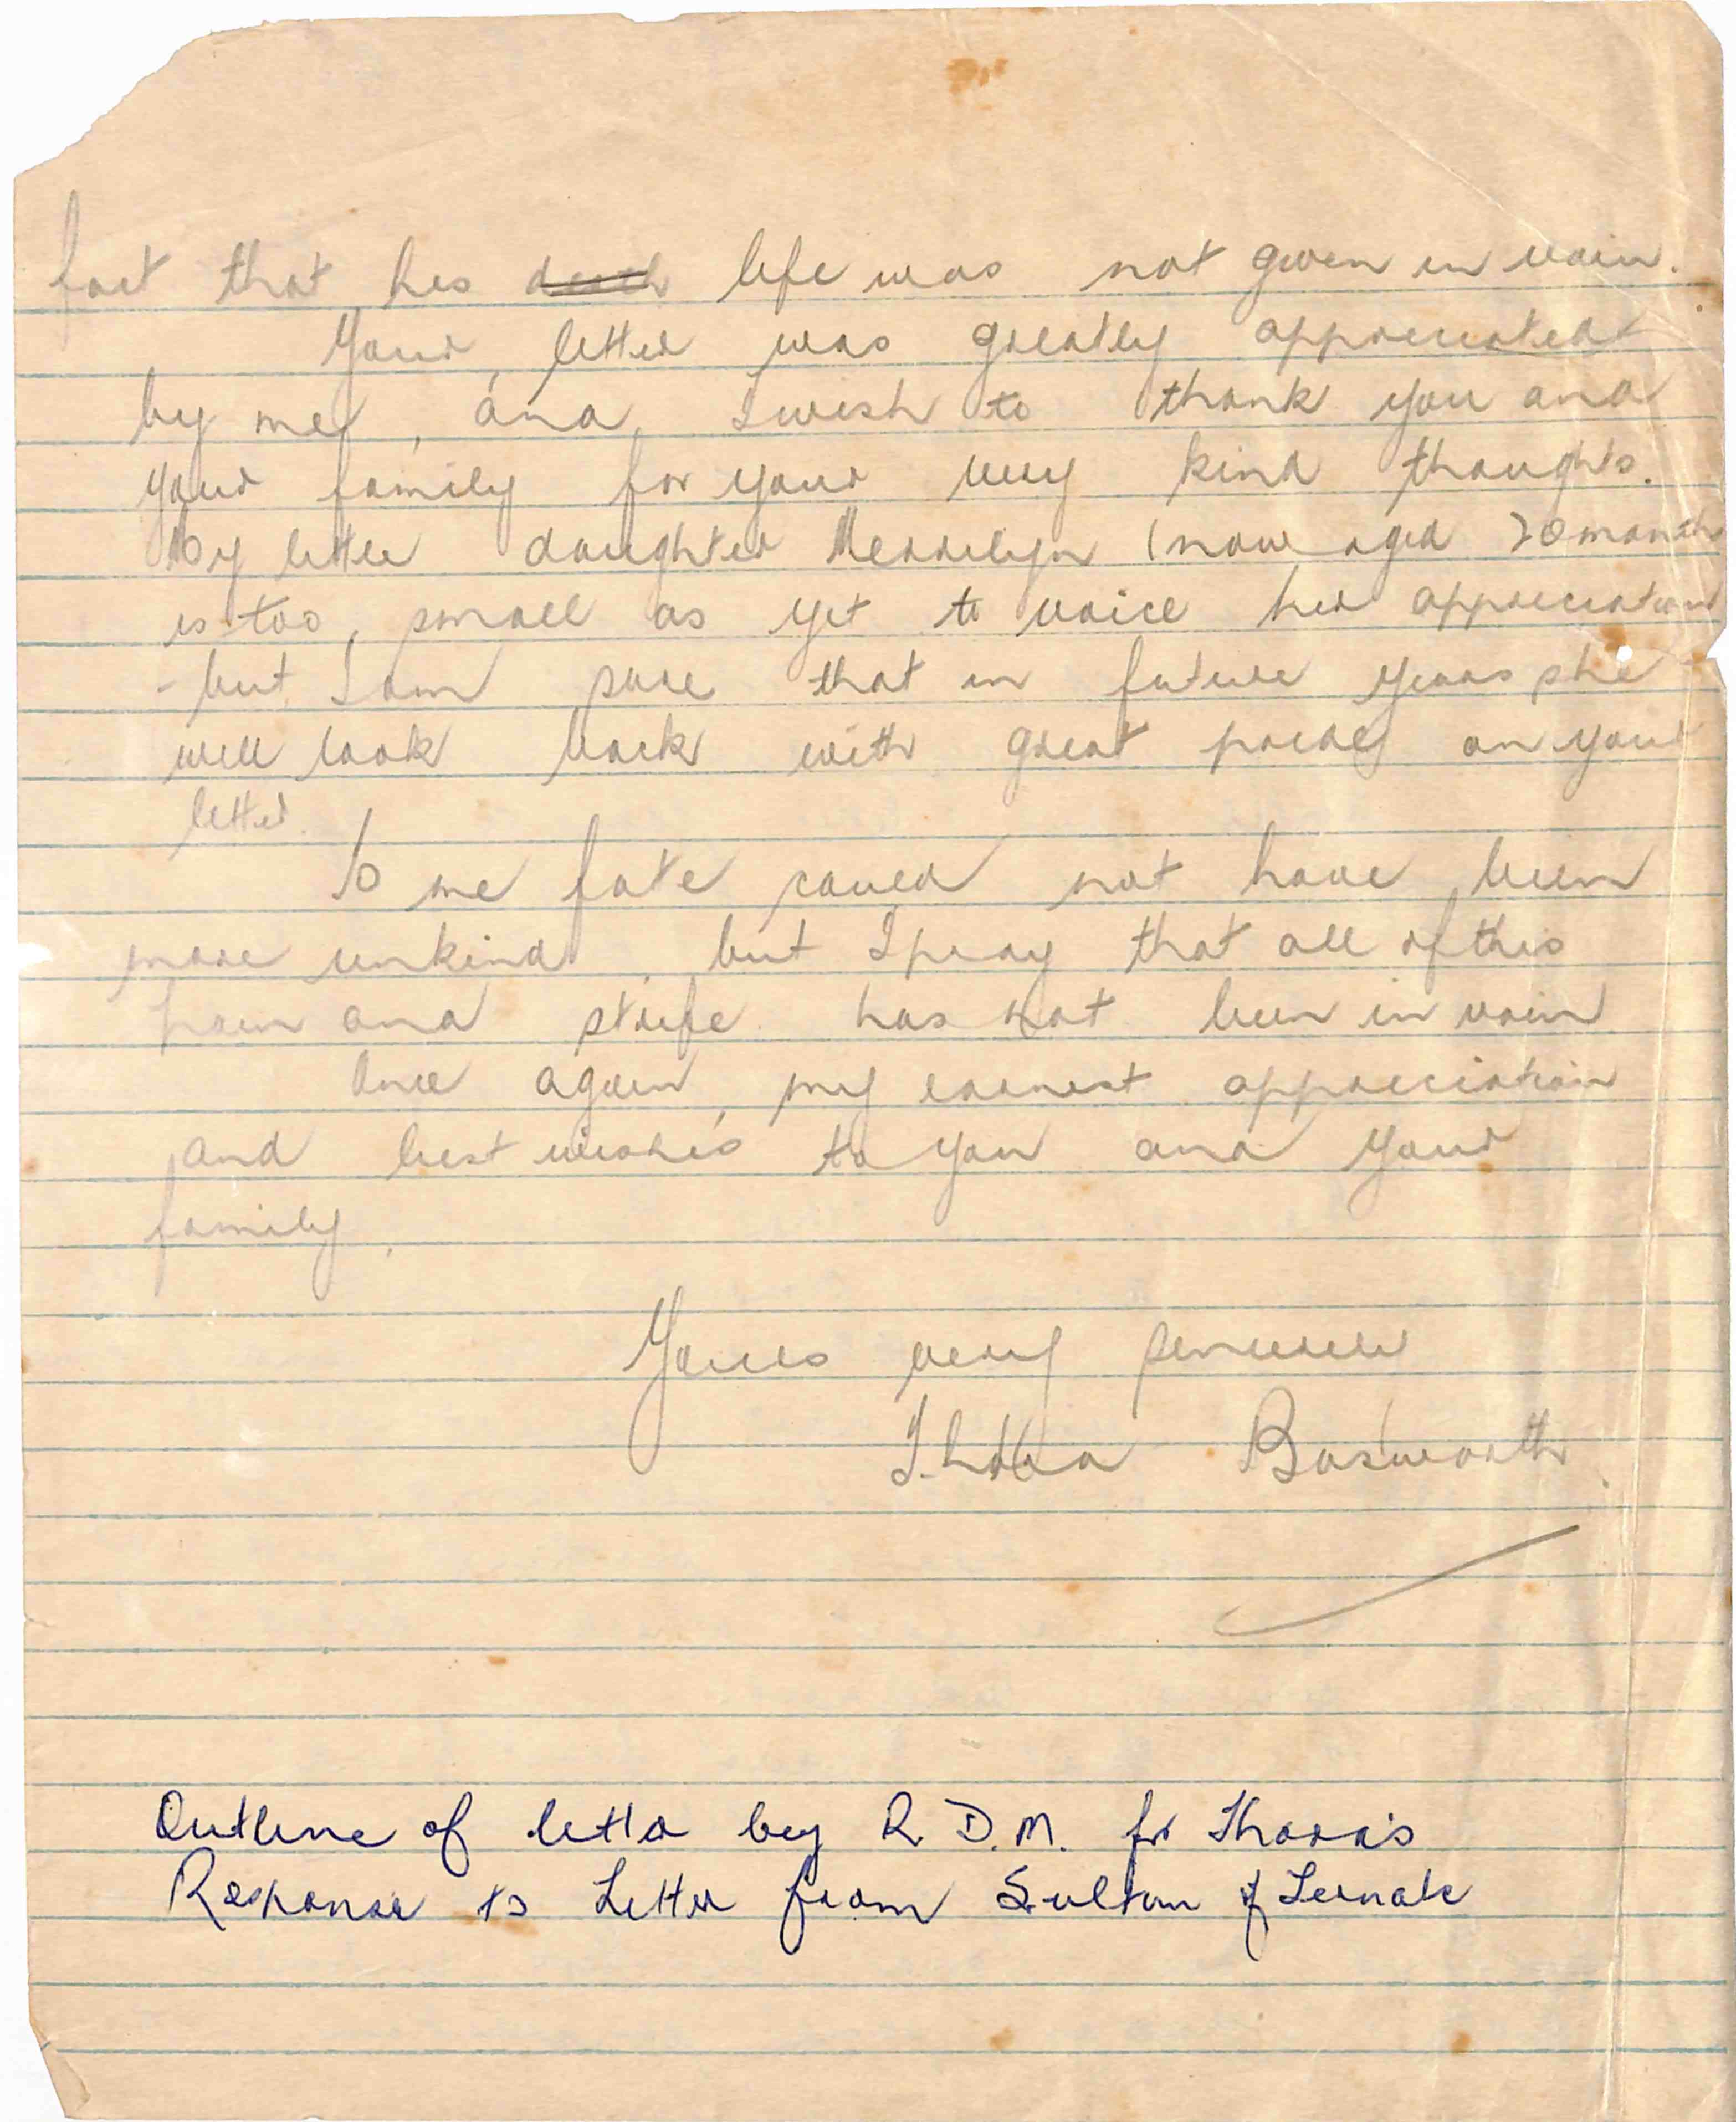 fact that his death life was not given in vain.
Your letter was greatly appreciated
by me, and I wish to thank you and
your family for your very kind thoughts.
My little daughter Merrilyn (now aged 20 months
is too small as yet to voice her appreciation
- but I am sure that in future years she
will look back with great pride on your
letter.
To me fate could not have been
more unkind, but I pray that all of this
pain and strife has not been in vain
Once again, my earnest appreciation
and best wishes to you and your
family,
Yours very sincerely
Thora Bosworth.
Outline of letter by R. D. M. for Thora's
Response to Letter from Sultan of Ternate